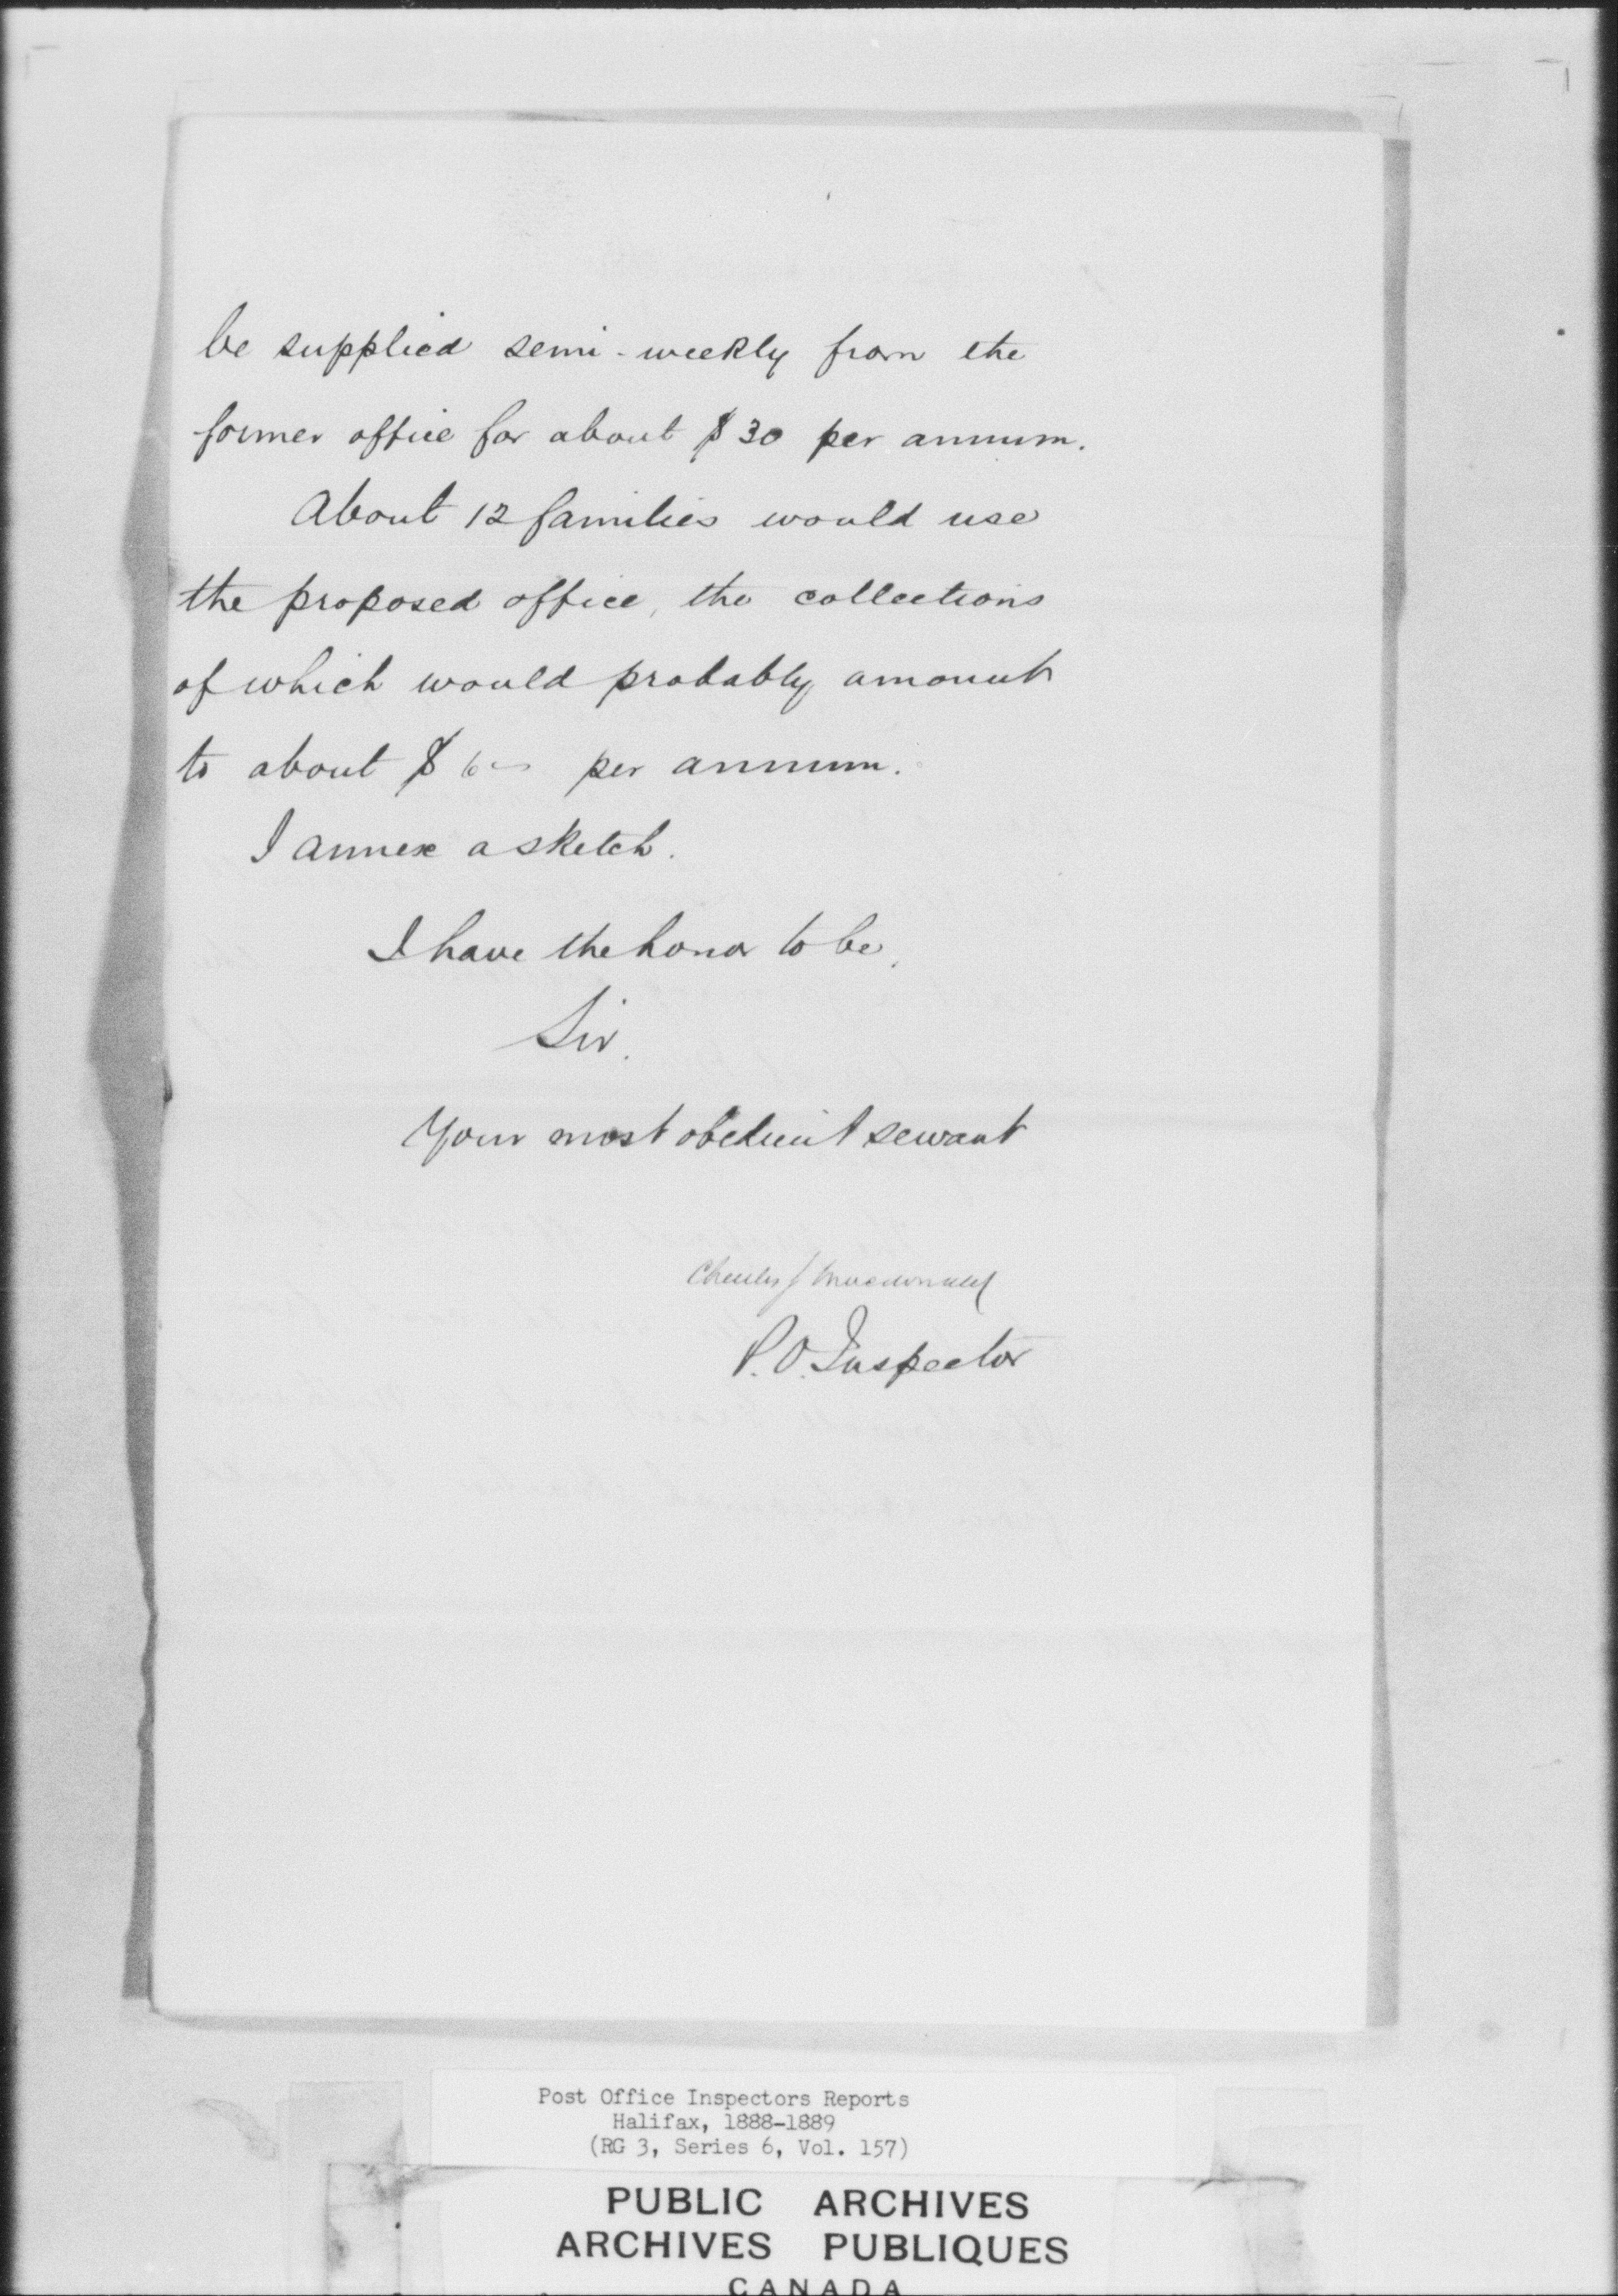 be supplied semi-weekly from the
former office for about $30 per annum.
About 12 families would use
the proposed office, the collections
of which would probably amount
to about $6 per annum.
I annex a sketch.
I have the honor to be,
Sir,
Your most obedient servant
Charles J Macdonald
P.O. Inspector
Post Office Inspectors Reports
Halifax, 1888-1889
(RG 3, Series 6, Vol. 157)
PUBLIC ARCHIVES
ARCHIVES PUBLIQUES
CANADA